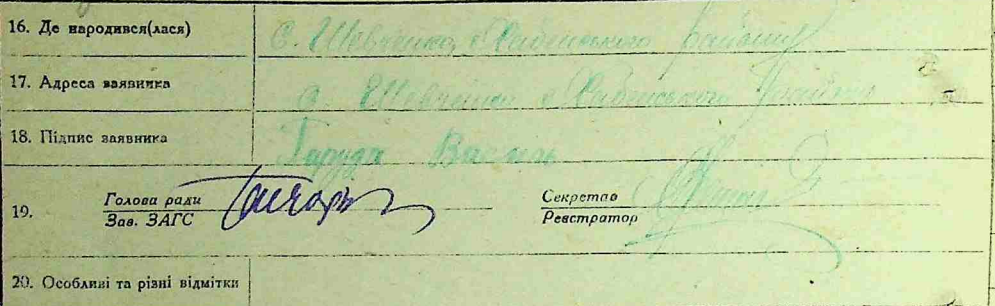 16. Де народився(лася) С. Шевченка района
17. Адреса заявника С. Шевченка района
18. Підпис заявника Гаруда Василь
19. Голова ради
Зав. ЗАГС
Секретар
Реєстратор
20. Особливі та різні відмітки